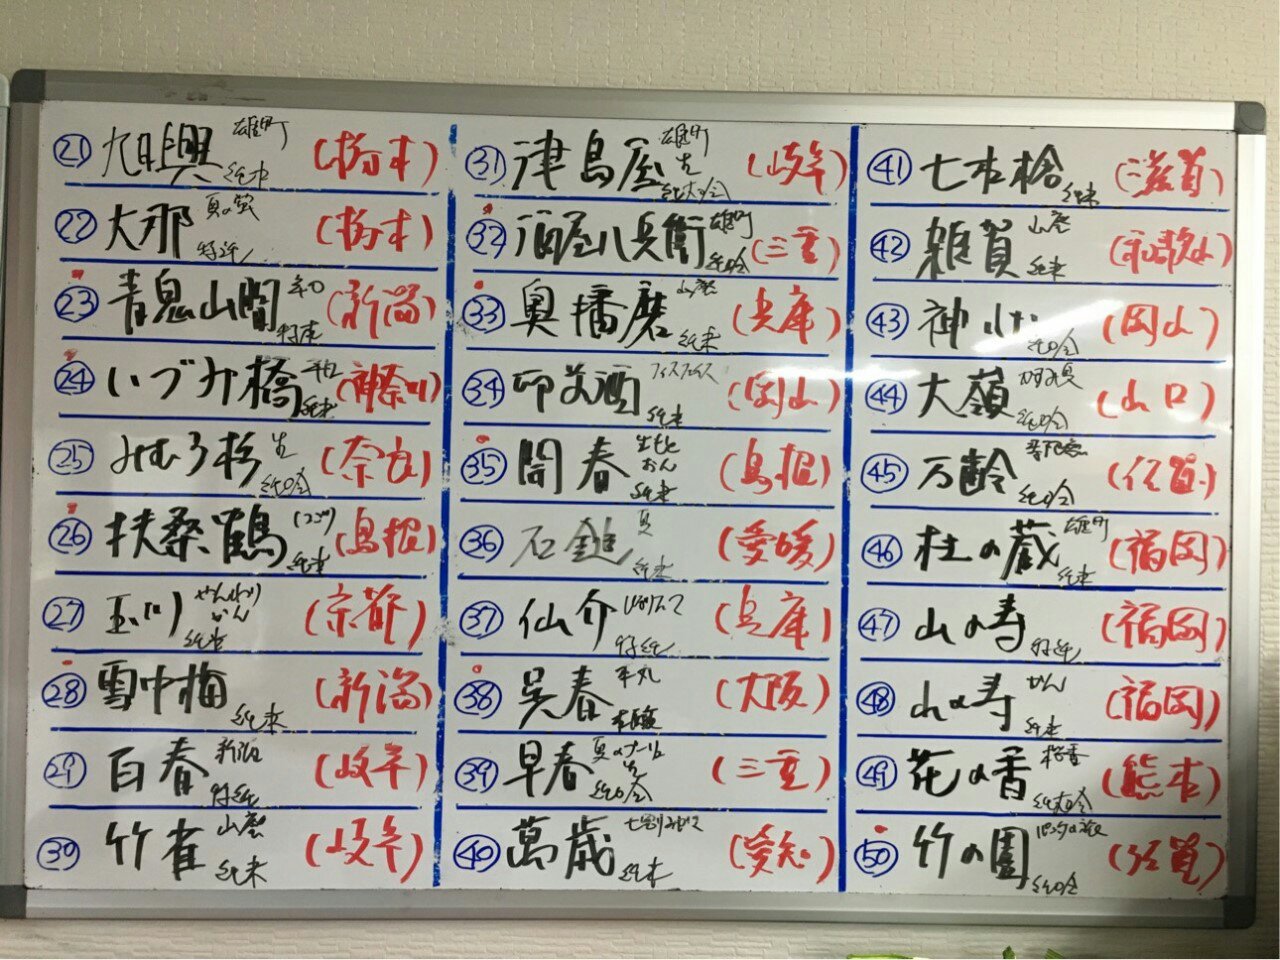 21 旭興 雄町 純米 (栃木)
22 大那 夏の蛍 特純 (栃木)
23 青鬼山間 特本 (新潟)
24 いづみ橋 純米 (神奈川)
25 みむろ杉 生 純吟 (奈良)
26 扶桑鶴 純米 (島根)
27 玉川 やんわり 純米 (京都)
28 雪中梅 純米 (新潟)
29 百春 特純 (岐阜)
30 竹雀 山廃 純米 (岐阜)
31 津島屋 雄町 生 純大吟 (岐阜)
32 酒屋八兵衛 雄町 純吟 (三重)
33 奥播磨 山廃 純米 (兵庫)
34 御前酒 純米 (岡山)
35 開春 生もと おん 純米 (島根)
36 石鎚 夏 純米 (愛媛)
37 仙介 特純 (兵庫)
38 呉春 本醸 (大阪)
39 早春 夏の 生 純吟 (三重)
40 萬歳 七割 純米 (愛知)
41 七本槍 純米 (滋賀)
42 雑賀 山廃 純米 (和歌山)
43 神心 純吟 (岡山)
44 大嶺 純吟 (山口)
45 万齢 純吟 (佐賀)
46 杜の蔵 雄町 純米 (福岡)
47 山の寿 特純 (福岡)
48 山の寿 かん 純米 (福岡)
49 花の香 桜香 純大吟 (熊本)
50 竹の園 純吟 (佐賀)